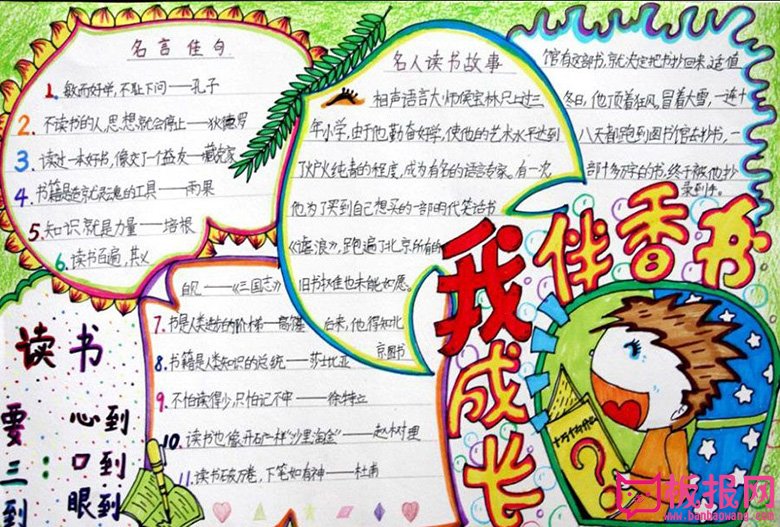 名言佳句
1. 敏而好学,不耻下问——孔子
2. 不读书的人,思想就会停止——狄德罗
3. 读过一本好书,像交了一个益友——藏克家
4. 书籍是造就灵魂的工具——雨果
5. 知识就是力量——培根
6. 读书百遍,其义
自见——《三国志》
7. 书是人类进步的阶梯——高尔基
8. 书籍是人类知识的总统——莎士比亚
9. 不怕读得少,只怕记不牢——徐特立
10. 读书也像开矿一样"沙里淘金"——赵树理
11. 读书破万卷,下笔如有神——杜甫
名人读书故事
相声语言大师侯宝林只上过三
年小学,由于他勤奋好学,使他的艺术水平达到
了炉火纯青的程度,成为有名的语言专家。有一次
他为了买到自己想买的一部明代笑话书
《谑浪》,跑遍了北京所有的
旧书摊也未能如愿。
后来,他得知北
京图书
馆有这部书,就决定把书抄回来。适值
冬日,他顶着狂风,冒着大雪,一连十
八天都跑到图书馆去抄书,一
部十多万字的书,终于被他抄
录到手。
书香伴我成长
读书
要三到
:
心到
口到
眼到
?
板报网
www.banbaowang.com